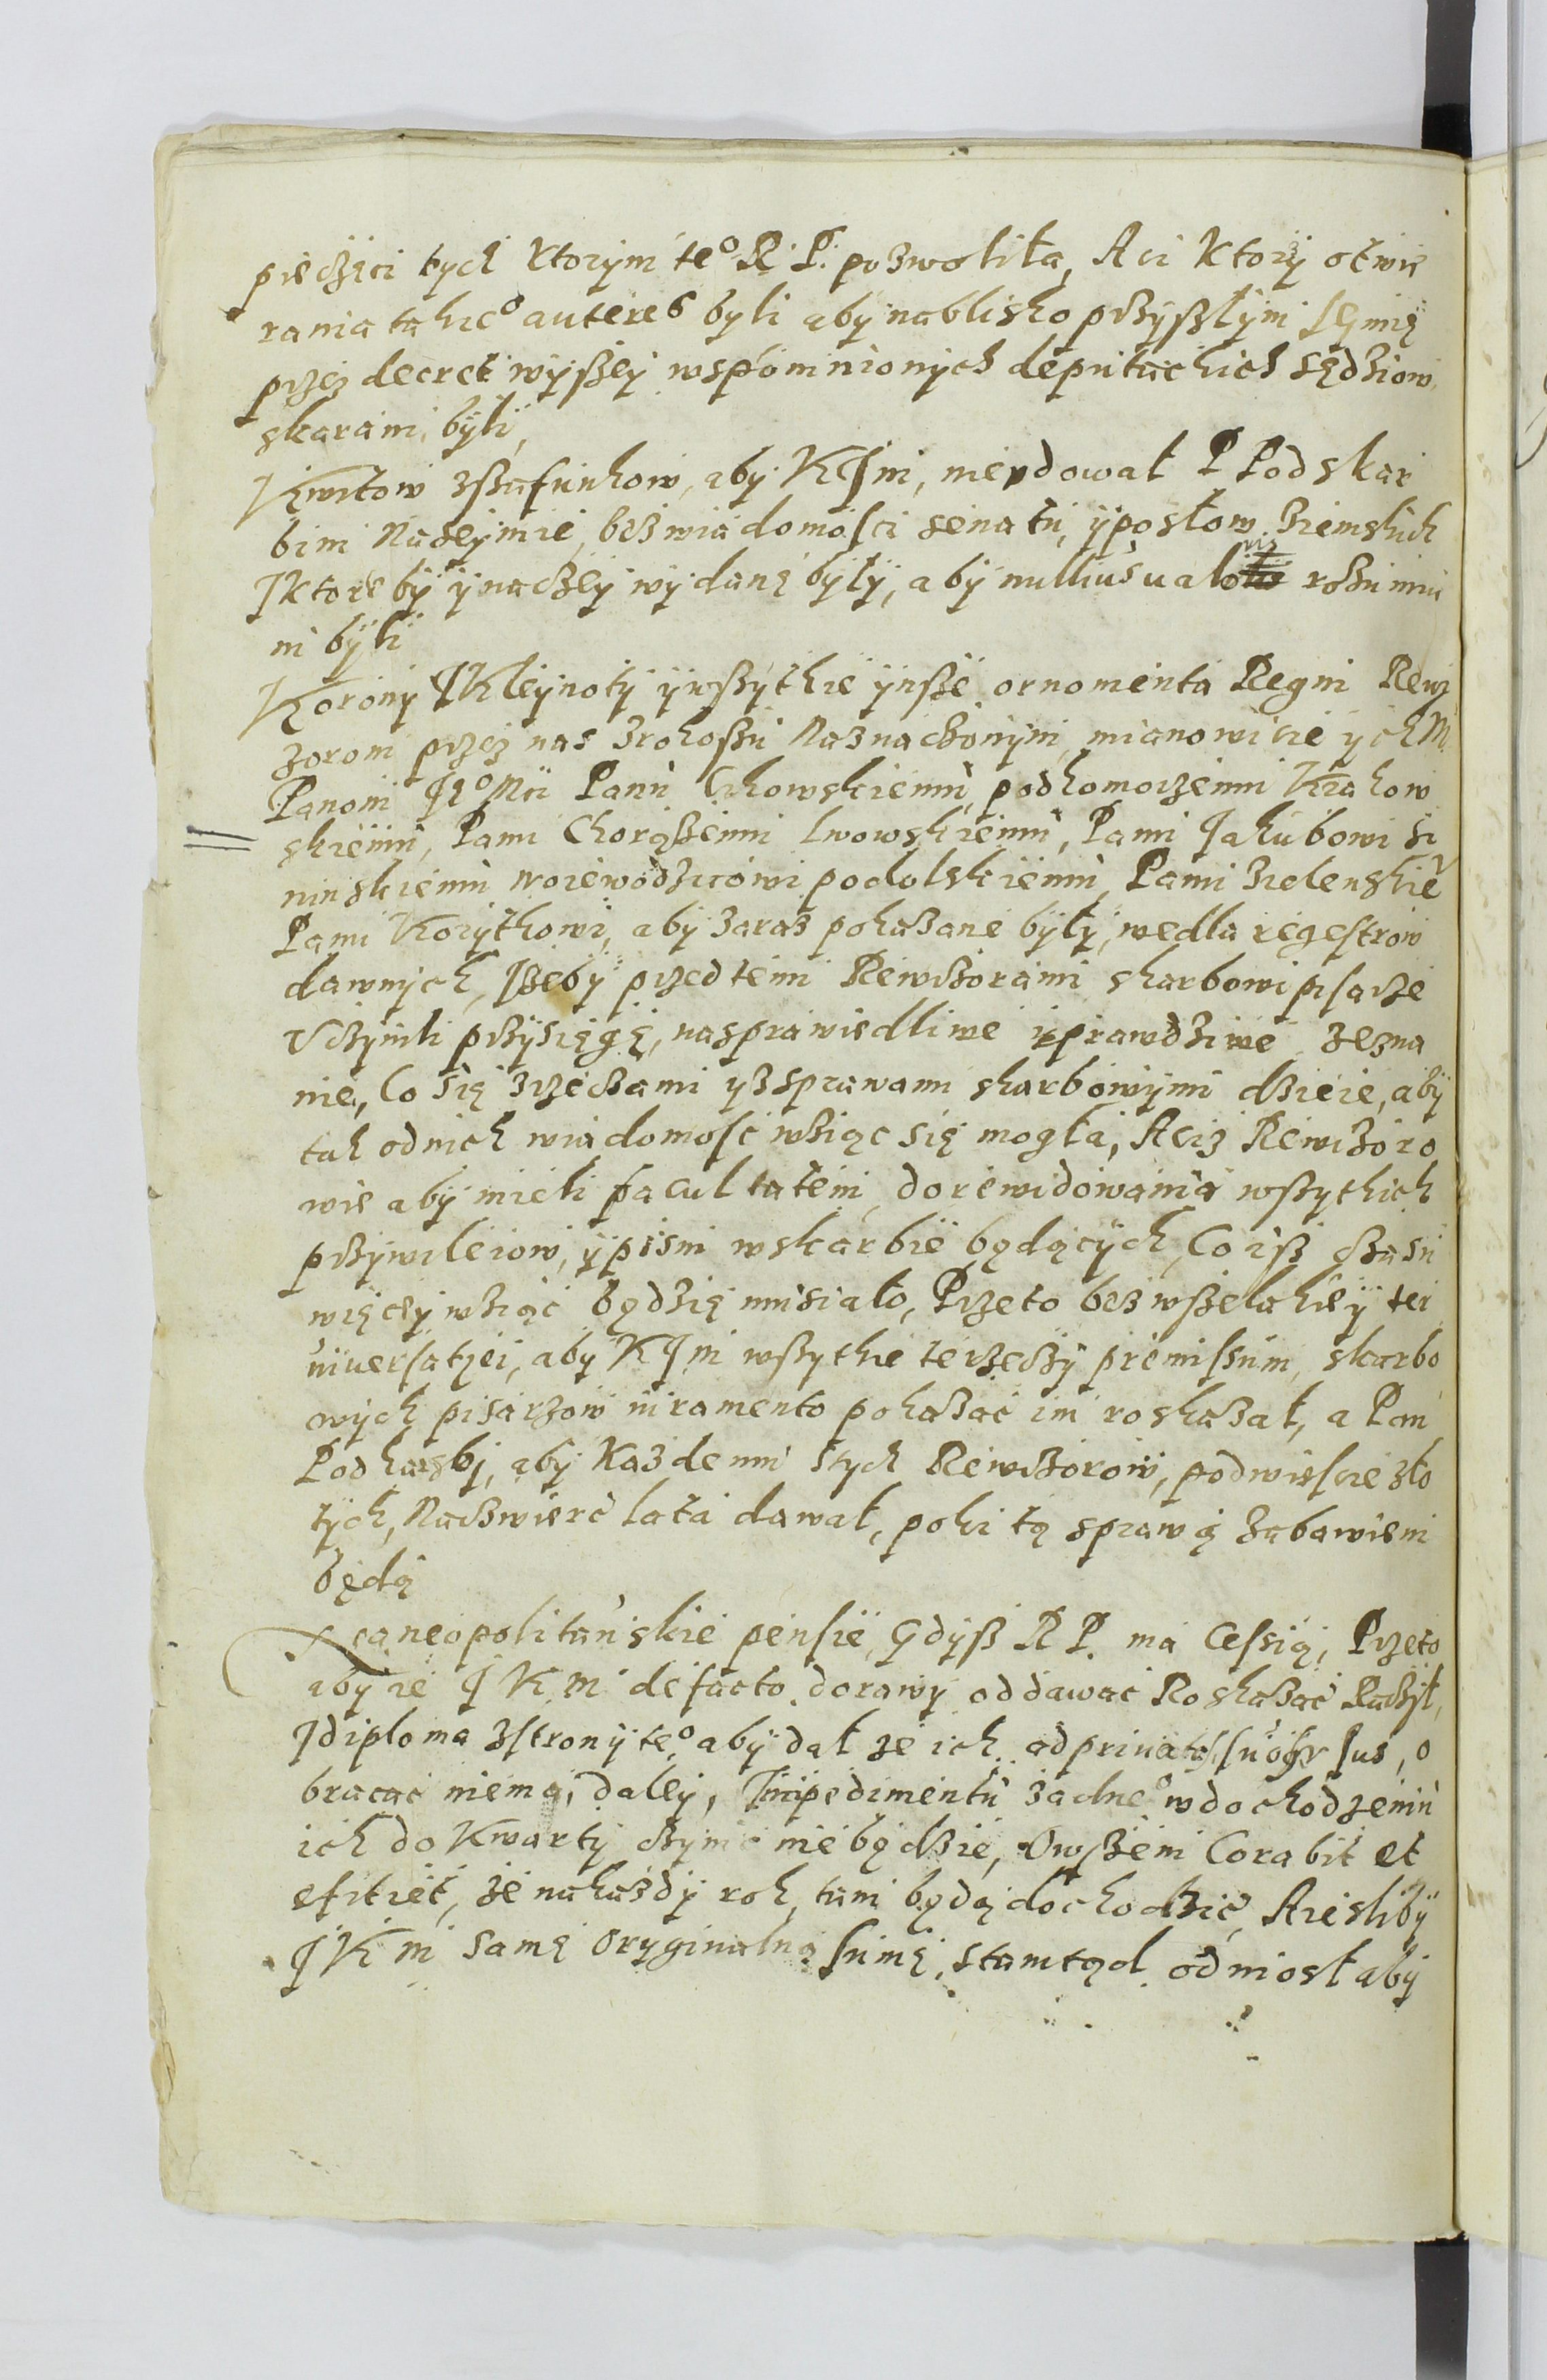 pieczęci tych ktorym te° R. P. pozwoliła, Aci ktorÿ otwie
rania takie° autores byli aby nablisko przyszłÿm Sejmię
przez decret wyszeÿ wspomnionych deputackich sędziow
skarani byli,
Kwitow zszafunkow, aby KJm, nieydował P Podskar
bim Naseÿmie, bez wiadomosci senatu, ÿposłow ziemskich
Jktore bÿ ÿnaczeÿ wÿdanę bÿłÿ, abÿ nullius ualoris rozumia
ni bÿli
Koronÿ JKleÿnotÿ ÿwszÿtkie ÿnsze ornomenta Regni Rewi
zorom przez nas zrokoszu Naznaczonÿm, mianowicie ÿch M.
Panom Je°Mci Panu Cikowskiemu, podkomorzemu Krakow
skiemu, Panu Chorązemu lwowskiemu, Panu Jakubowi Si
ninskiemu Woiewodzicowi podolskiemu, Panu Zielenskie°
Panu Korÿtkowi, abÿ zaraz pokazane bÿłÿ, wedla regestrow
dawnych, Jżebÿ przed temi Rewizorami skarbowi pisarze
Vczÿnili przysięgę, nasprawiedliwe ÿprawdziwe zezna
nie, Co się zrzeczami yzsprawami skarbowymi dzieie, abÿ
tak odnich wiadomosc wziąc się mogła, Aciz Rewizoro
wie abÿ mieli facultatem, dorewidowania wszytkich
przÿwileiow, ÿpism wskarbie będącÿch, Co isz czasu
więceÿ wziąc będzię musiało, Przeto bez wszelakieÿ ter
giuersatÿei, abÿ KJm wszytkie terzeczÿ premissum, skarbo
owych pisarzow iuramento pokazac im roskazał, a Pan
Podkarsbi, abÿ Kazdemu stych Rewizorow, podwiescie zło
tych, Naczwierc lata dawał, poki tą sprawą zabawieni
będą
neopolitanskie pensie, Gdÿsz R P. ma Cessią, Przeto
abÿ ie J K M defacto dorawÿ oddawac Roskazac Raczÿł,
Jdiploma zstronÿ te°, abÿ dał ze ich ad priuatos suos usus, o
bracac niema, daleÿ, Jmpedimentu zadne° wdochodzeniu
ich do Kwartÿ czynic nie będzie, Owszem Corabit et
efitiet, że nakazdÿ rok, tam będą dochodzic, Aieslibÿ
J K M samę Oryginalną sumę, stamtąd odniosł abÿ